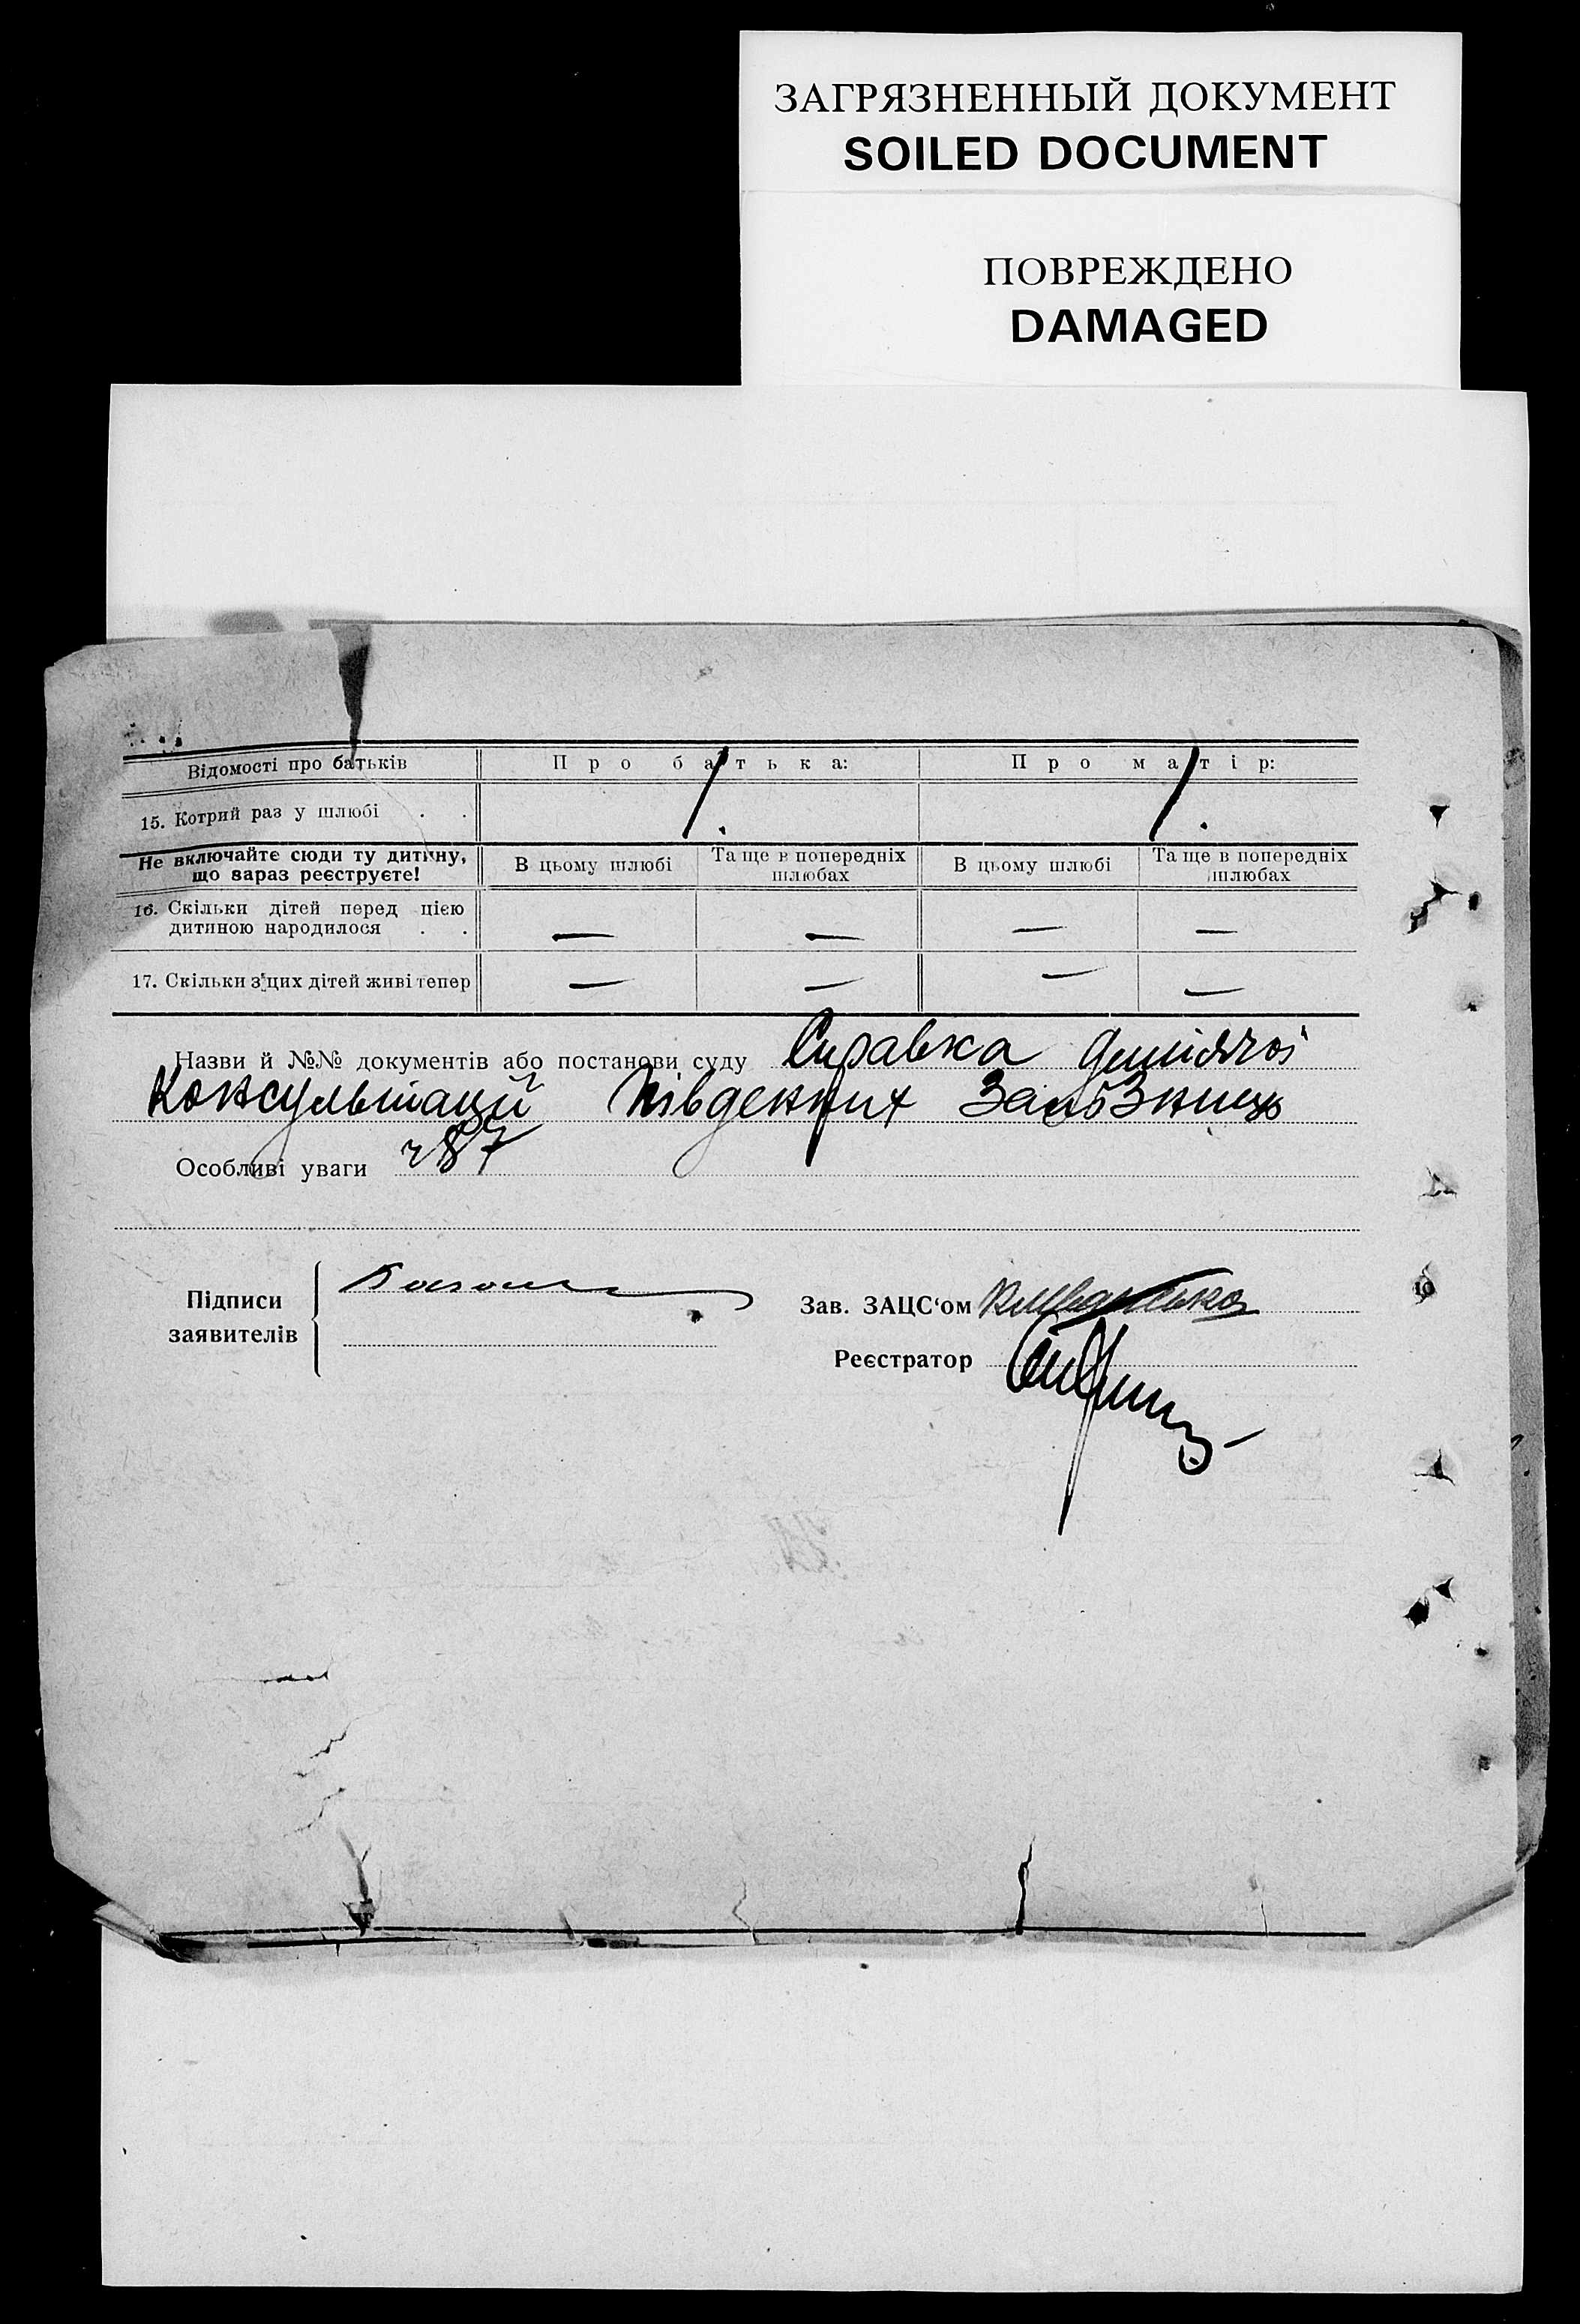 ЗАГРЯЗНЕННЫЙ ДОКУМЕНТ
SOILED DOCUMENT
ПОВРЕЖДЕНО
DAMAGED
Відомості про батьків Про батька: Про матір:
15. Котрий раз у шлюбі . . 1. 1.
Не включайте сюди ту дитину, що зараз реєструєте! В цьому шлюбі Та ще в попередніх шлюбах В цьому шлюбі Та ще в попередніх шлюбах
16. Скільки дітей перед цією дитиною народилося . . — — — —
17. Скільки з цих дітей живі тепер — — — —
Назви й №№ документів або постанови суду Справка дитячої
Консультації Південних Залізниць
Особливі уваги 287
Підписи заявителів
Зав. ЗАЦС‘ом
Реєстратор